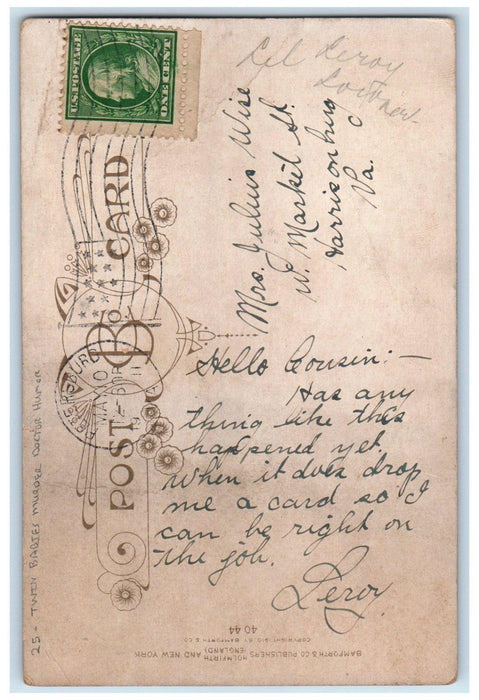 U.S. POSTAGE
ONE CENT
POST CARD
MAY 10
Mrs. Julius Wise
W. Market St.
Harrisonburg
Va.
Leroy
Hello Cousin:—
Has any
thing like this
happened yet.
When it does drop
me a card so I
can be right on
the job.
Leroy
25- TWIN BABIES MURDER DOCTOR HUMOR
BAMFORTH & CO PUBLISHERS HOLMFIRTH (ENGLAND) AND NEW YORK
COPYRIGHT 1910. BY BAMFORTH & CO
4044